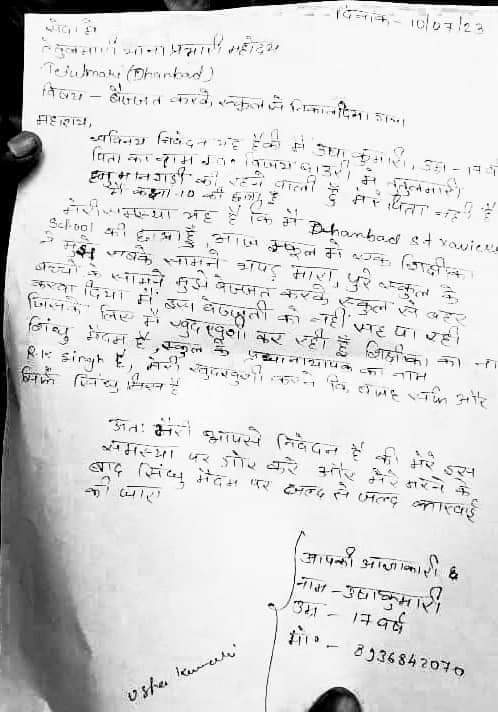 दिनांक - 10/07/23
सेवा मे
तेतुलमारी थाना प्रभारी महोदय
Tetulmari (Dhanbad)
विषय - बेज्जत करके स्कूल से निकाल दिया गया
महाशय,
सविनय निवेदन यह है की मैं उषा कुमारी, उम्र - 17 वर्ष
पिता का नाम स्व० मैं तेतुलमारी
की रहने वाली हूँ मेरे पिता नही है
मैं कक्षा-10 की छात्रा हूँ
मेरी समस्या यह है कि मैं Dhanbad st xaviers
school की छात्रा हूँ, आज स्कूल में एक शिक्षीका
ने मुझे सबके सामने थप्पड़ मारा, पुरे स्कूल के
बच्चों के सामने मुझे बेज्जत करके स्कूल से बाहर
करवा दिया मैं इस बेज्जती को नहीं सह पा रही
जिसके लिए मैं खुदखुशी कर रही हूँ शिक्षीका का नाम
सिंधु मैडम है, स्कूल के प्रधानाध्यापक का नाम
R.K singh है, मेरी खुदखुशी करने कि वजह सिर्फ और
सिर्फ सिंधु मिस है
अतः मेरी आपसे निवेदन है की मेरे इस
समस्या पर गौर करे और मेरे मरने के
बाद सिंधु मैडम पर जल्द से जल्द कारवाई
की जाए
आपकी आज्ञाकारी
नाम - उषा कुमारी
उम्र - 17 वर्ष
मो० - 8936842070
Usha kumari